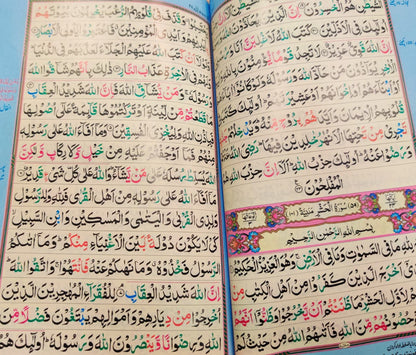 الشَّيْطٰنِ هُمُ الْخٰسِرُوْنَ اِنَّ الَّذِيْنَ
اُولٰٓئِكَ فِى الْاَذَلِّيْنَ كَتَبَ اللّٰهُ لَاَغْلِبَنَّ اَنَا
اِنَّ اللّٰهَ قَوِىٌّ عَزِيْزٌ لَا تَجِدُ قَوْمًا يُّؤْمِنُوْنَ
الْاٰخِرِ يُوَآدُّوْنَ مَنْ حَآدَّ اللّٰهَ وَرَسُوْلَهٗ وَلَوْ كَانُوْٓا
اَوْ اَبْنَآءَهُمْ اَوْ اِخْوَانَهُمْ اَوْ عَشِيْرَتَهُمْ اُولٰٓئِكَ كَتَبَ
قُلُوْبِهِمُ الْاِيْمَانَ وَاَيَّدَهُمْ بِرُوْحٍ مِّنْهُ وَيُدْخِلُهُمْ
تَجْرِىْ مِنْ تَحْتِهَا الْاَنْهٰرُ خٰلِدِيْنَ فِيْهَا رَضِىَ اللّٰهُ
وَرَضُوْا عَنْهُ اُولٰٓئِكَ حِزْبُ اللّٰهِ اَلَآ اِنَّ حِزْبَ اللّٰهِ
الْمُفْلِحُوْنَ
سُوْرَةُ الْحَشْرِ مَدَنِيَّةٌ
بِسْمِ اللّٰهِ الرَّحْمٰنِ الرَّحِيْمِ
لِلّٰهِ مَا فِى السَّمٰوٰتِ وَمَا فِى الْاَرْضِ وَهُوَ الْعَزِيْزُ الْحَكِيْمُ
اَخْرَجَ الَّذِيْنَ كَفَرُوْا مِنْ اَهْلِ الْكِتٰبِ مِنْ
لِاَوَّلِ الْحَشْرِ مَا ظَنَنْتُمْ اَنْ يَّخْرُجُوْا وَظَنُّوْٓا اَنَّهُمْ
حُصُوْنُهُمْ مِّنَ اللّٰهِ فَاَتٰىهُمُ اللّٰهُ مِنْ حَيْثُ لَمْ
وَقَذَفَ فِىْ قُلُوْبِهِمُ الرُّعْبَ يُخْرِبُوْنَ
وَاَيْدِى الْمُؤْمِنِيْنَ
اَنْ كَتَبَ اللّٰهُ عَلَيْهِمُ الْجَلَآءَ لَعَذَّبَهُمْ فِى الدُّنْيَا
فِى الْاٰخِرَةِ عَذَابُ النَّارِ ذٰلِكَ بِاَنَّهُمْ شَآقُّوا اللّٰهَ
وَرَسُوْلَهٗ وَمَنْ يُّشَآقِّ اللّٰهَ فَاِنَّ اللّٰهَ شَدِيْدُ الْعِقَابِ
قَطَعْتُمْ مِّنْ لِّيْنَةٍ اَوْ تَرَكْتُمُوْهَا قَآئِمَةً عَلٰٓى اُصُوْلِهَا
فَبِاِذْنِ اللّٰهِ وَلِيُخْزِىَ الْفٰسِقِيْنَ وَمَآ اَفَآءَ اللّٰهُ عَلٰى رَسُوْلِهٖ
مِنْهُمْ فَمَآ اَوْجَفْتُمْ عَلَيْهِ مِنْ خَيْلٍ وَّلَا رِكَابٍ وَّلٰكِنَّ
يُسَلِّطُ رُسُلَهٗ عَلٰى مَنْ يَّشَآءُ وَاللّٰهُ عَلٰى كُلِّ شَىْءٍ قَدِيْرٌ
مَآ اَفَآءَ اللّٰهُ عَلٰى رَسُوْلِهٖ مِنْ اَهْلِ الْقُرٰى فَلِلّٰهِ وَلِلرَّسُوْلِ
وَلِذِى الْقُرْبٰى وَالْيَتٰمٰى وَالْمَسٰكِيْنِ وَابْنِ السَّبِيْلِ
كَىْ لَا يَكُوْنَ دُوْلَةًۢ بَيْنَ الْاَغْنِيَآءِ مِنْكُمْ وَمَآ اٰتٰىكُمُ
الرَّسُوْلُ فَخُذُوْهُ وَمَا نَهٰىكُمْ عَنْهُ فَانْتَهُوْا وَاتَّقُوا اللّٰهَ
اِنَّ اللّٰهَ شَدِيْدُ الْعِقَابِ لِلْفُقَرَآءِ الْمُهٰجِرِيْنَ الَّذِيْنَ
اُخْرِجُوْا مِنْ دِيَارِهِمْ وَاَمْوَالِهِمْ يَبْتَغُوْنَ فَضْلًا مِّنَ
اللّٰهِ وَرِضْوَانًا وَّيَنْصُرُوْنَ اللّٰهَ وَرَسُوْلَهٗ اُولٰٓئِكَ هُمُ